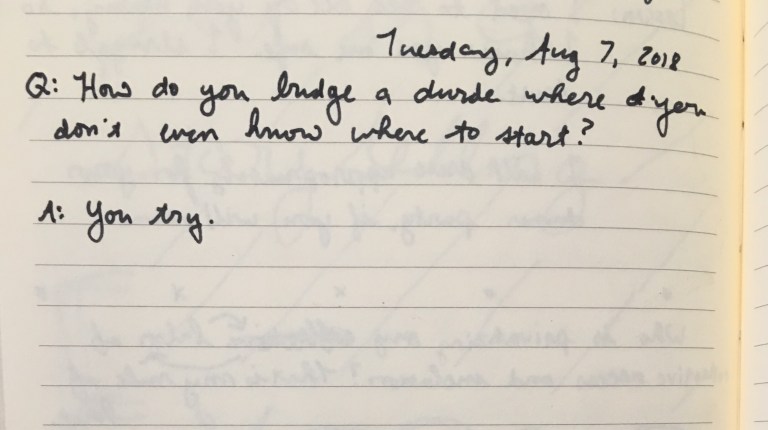 Tuesday, Aug 7, 2018
Q: How do you bridge a divide where you
don't even know where to start?
A: You try.